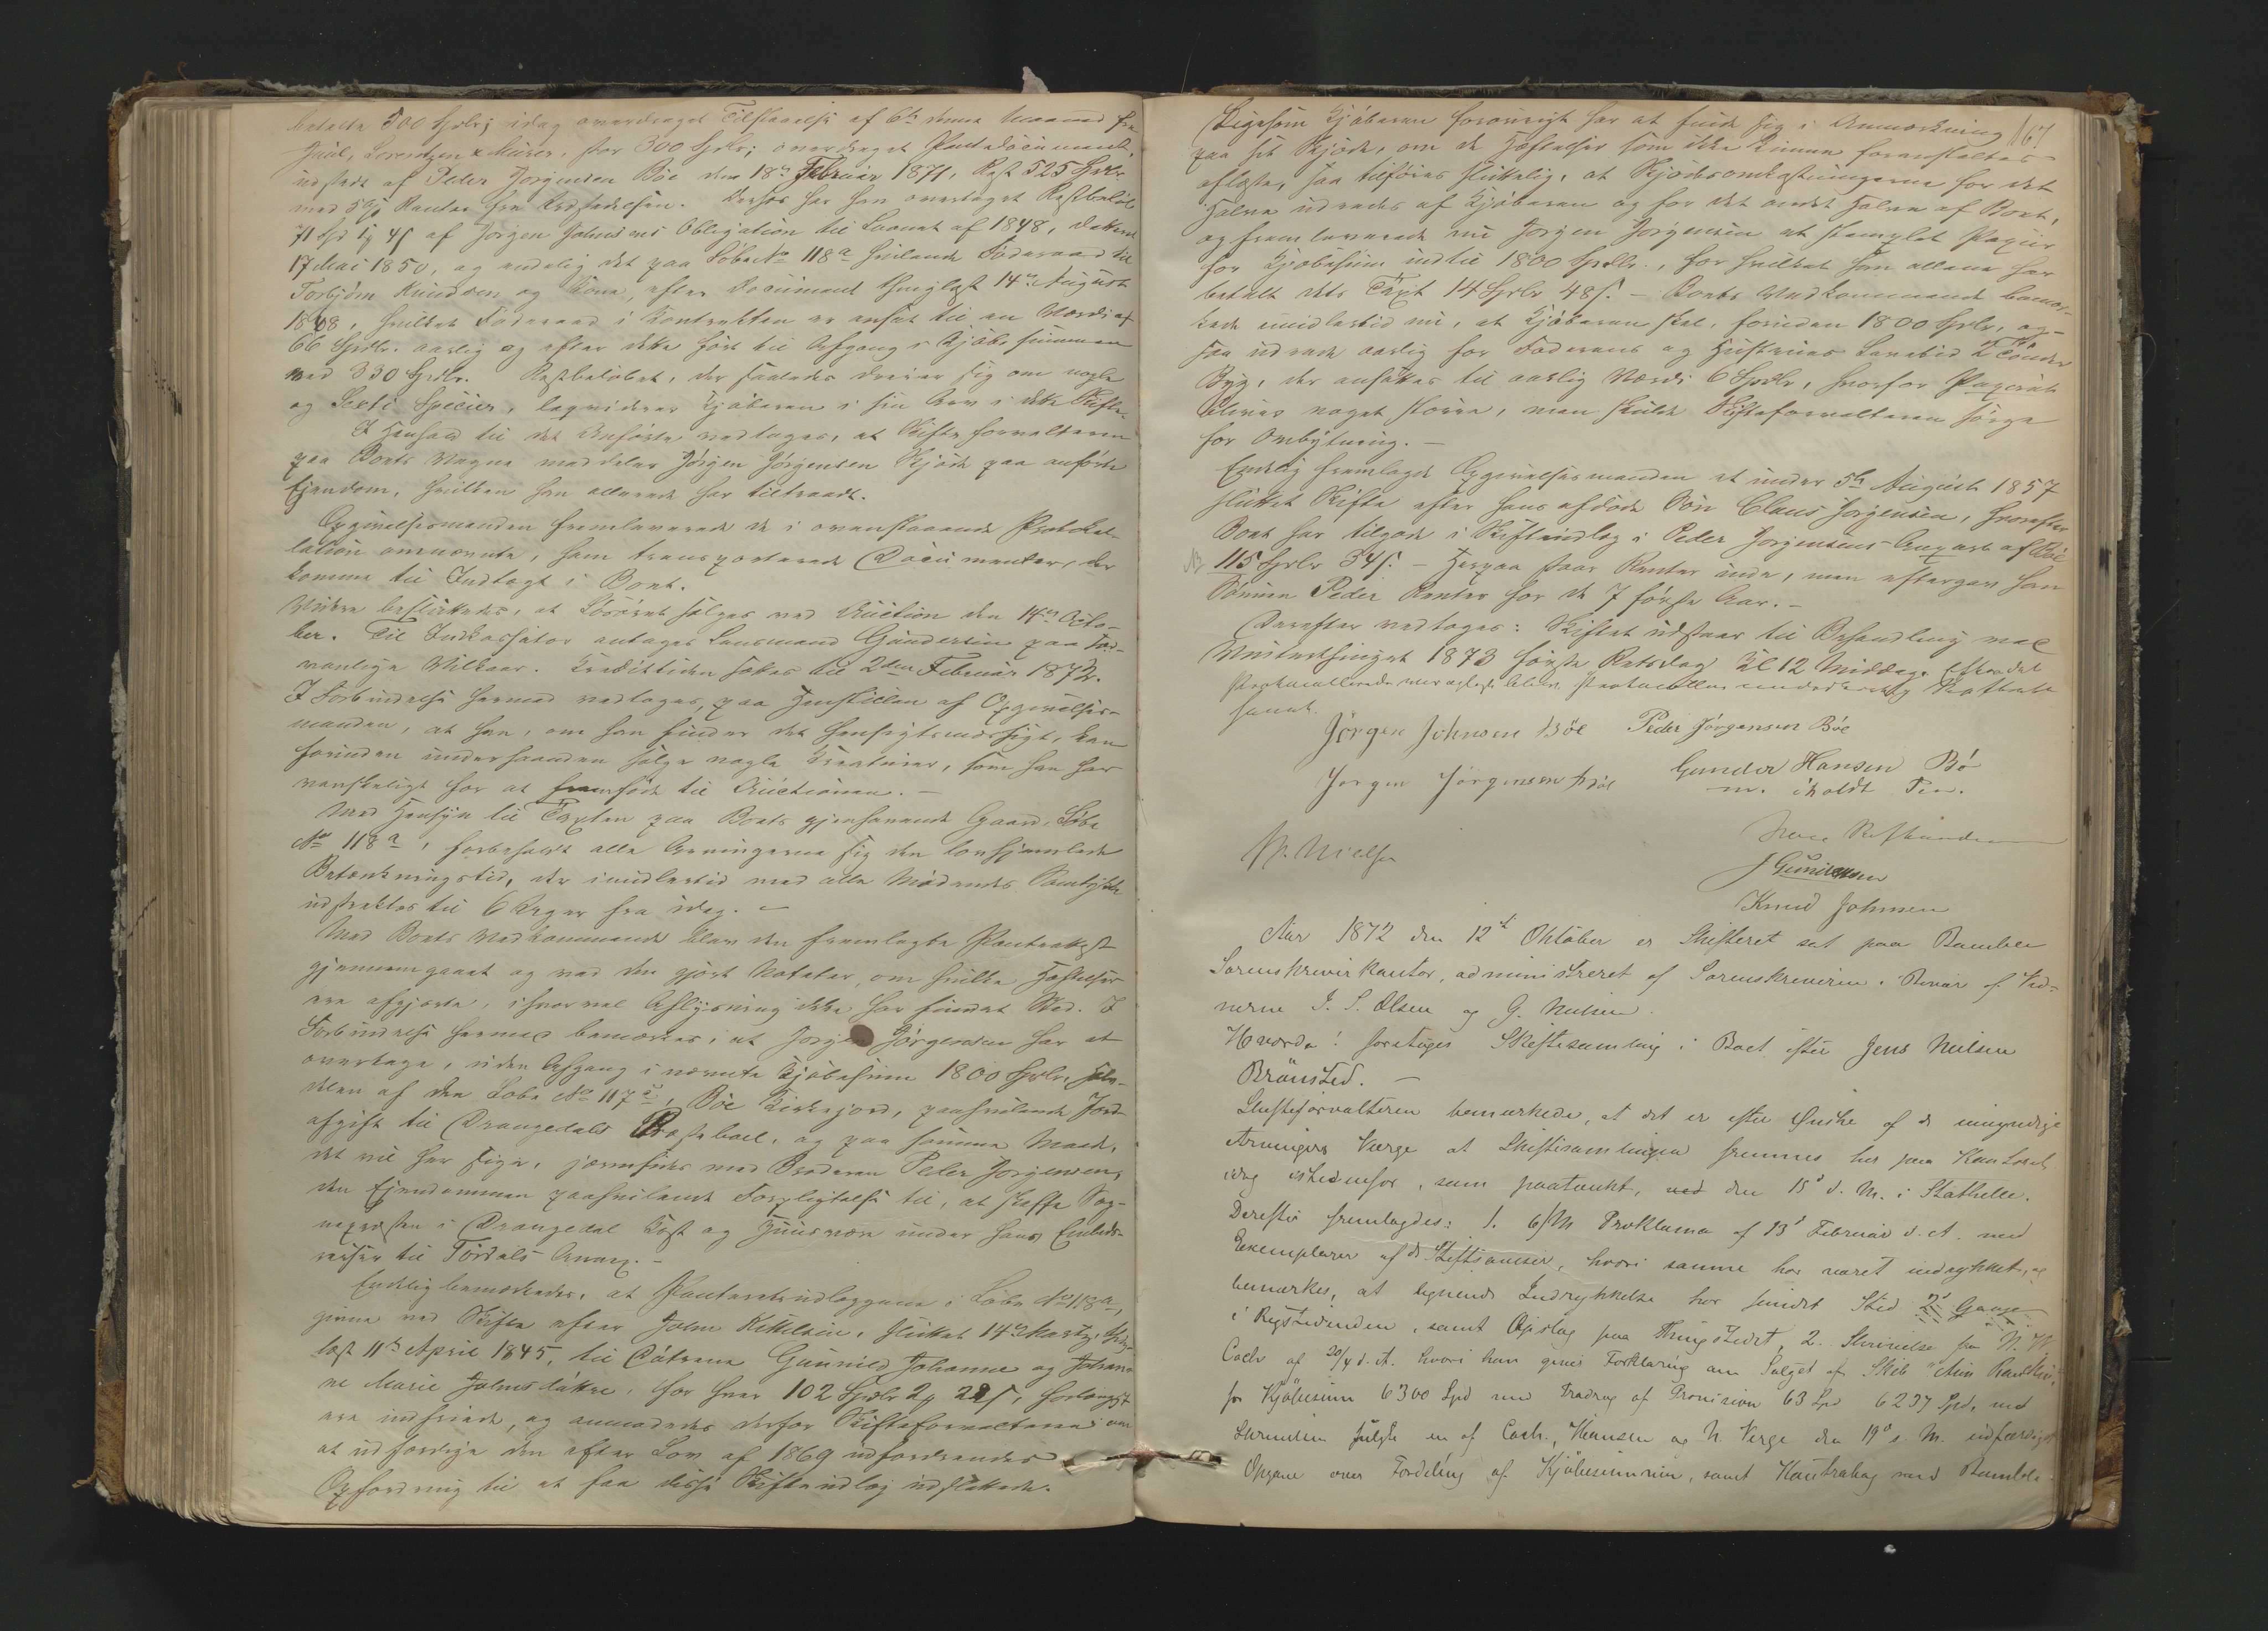 betalte 300 Spdlr; idag overdraget Tilstaaelse af 6te denne Maaned fra
Juul, Lorentzen & Müser, stor 300 Spdlr; overdraget Pantedocument,
udstedt af Peder Jørgensen Böe den 18de Februar 1871, Rest 525 Spdlr
med 5 % Renter fra Udstedelsen. Derhos har han overtaget Restbeløb
71 Spd 1 45 af Jørgen Johnsens Obligation til Laanet af 1848, dateret
17 Mai 1850, og endelig det paa Løbe No 118 a hvilende Föderaad til
Torbjörn Knudsen og Kone, efter Document thinglæst 14de August
1868, hvilket Föderaad i Kontrakten er ansat til en Værdi af
66 Spdlr. aarlig og efter dette ført til Afgang i Kjøbesummen
med 330 Spdlr. Restbeløbet, der saaledes dreier sig om nogle
og Sexti Specier, liqviderer Kjøberen i sin Arv i dette Skifte.
I Henhold til det Anførte vedtoges, at Skifteforvalteren
paa Boets Vegne meddeler Jørgen Jørgensen Skjøde paa anførte
Ejendom, hvilken han allerede har tiltraadt.
Opgivelsesmanden fremleverede de i ovenstaaende Protokol-
lation omnævnte, ham transporterede Documenter, der
komme til Indtægt i Boet.
Videre besluttedes, at Løsøret sælges ved Auction den 14de Octo-
ber. Til Indkassator antages Lensmand Gundersen paa sæd-
vanlige Vilkaar. Kredittiden sættes til 2den Februar 1873.
I Forbindelse hermed vedtoges, paa Henstillen af Opgivelses-
manden, at han, om han finder det hensigtsmæssigt, kan
forinden underhaanden sælge nogle Kreaturer, som han har
vanskeligt for at fremføde til Auctionen. —
Med Hensyn til Taxten paa Boets gjenhavende Gaard, Løbe
No 118 a, forbeholdt alle Arvingerne sig den lovhjemlede
Betænkningstid, der imidlertid med alle Mødendes Samtykke
udstraktes til 6 Uger fra idag. —
Med Boets Vedkommende blev den fremlagte Panteattest
gjennemgaaet og ved den gjort Notater, om hvilke Hæftelser
ere afgjorte, ihvorvel Aflysning ikke har fundet Sted. I
Forbindelse hermed bemærkes, at Jørgen Jørgensen har at
overtage, uden Afgang i nævnte Kjøbesum 1800 Spdlr, Halv-
delen af den Løbe No 117 c, Böe Kirkejord, paahvilende Jord-
afgift til Drangedals Præstebord, og paa samme Maade,
det vil her sige, jævnsides med Broderen Peder Jørgensen,
den Ejendommen paahvilende Forpligtelse til, at skaffe Sog-
nepræsten i Drangedal Kost og Huusvære under hans Embeds-
reiser til Tördals Annex. —
Endelig bemærkedes, at Panteretsudlæggene i Løbe No 118 a,
givne ved Skifte efter John Kittelsen, sluttet 14de Marts, thing-
læst 11te April 1845, til Døtrene Gunnild Johanne og Johan-
ne Marie Johnsdøttre, for hver 102 Spdlr 2 22 s, forlængst
ere indfriede, og anmodedes derfor Skifteforvalteren om
at udfærdige den efter Lov af 1869 udfordrendes
Opfordring til at faa disse Skifteudlæg udslettede.
167
Ligesom Kjøberen forøvrigt har at finde sig i Anmærkning
paa sit Skjøde, om de Hæftelser som ikke kunne foranstaltes
aflæste, saa tilføies sluttelig, at Skjødeomkostningerne for det
Halve udredes af Kjøberen og for det andet Halve af Boet,
og fremleverede nu Jørgen Jørgensen et stemplet Papiir
for Kjøbesum indtil 1800 Spdlr., for hvilket han allene har
betalt dets Taxt 14 Spdlr 48 s. — Boets Vedkommende bemær-
kede imidlertid nu, at Kjøberen skal, foruden 1800 Spdlr, og-
saa udrede aarlig for Faderens og Hustrues Levetid 2 Tønder
Byg, der ansættes til aarlig Værdi 6 Spdlr, hvorfor Papiret
bliver noget større, men skulde Skifteforvalteren sørge
for Ombytning. —
Endelig fremlagde Opgivelsesmanden et under 5te August 1857
sluttet Skifte efter hans afdøde Søn Claus Jørgensen, hvorefter
Boet har tilgode i Skifteudlæg i Peder Jørgensens Anpart af Böe
NB 115 Spdlr 34 s. — Herpaa staar Renter inde, men eftergav han
Sønnen Peder Renter for de 7 første Aar. —
Derefter vedtoges: Skiftet udstaar til Behandling ved
Vinterthinget 1873 første Retsdag Kl 12 Middag. Efterat det
Protocollerede var oplæst blev Protocollen underskrevet og Skifteretten
hævet.
Jörgen Johnsen Böe Peder Jörgensen Böe
Jorgen Jörgensen Böe Gunder Hansen Bö
m. iholdt Pen.
N. Nielsen
J Gundersen
Knud Johnsen
Aar 1872 den 12te Oktober er Skifteret sat paa Bamble
Sorenskriverkontor, administreret af Sorenskriveren. Bivær af Vid-
nerne J. S. Olsen og G. Nielsen.
Hvorda! foretoges Skiftesamling i Boet efter Jens Nielsen
Brönsted. —
Skifteforvalteren bemærkede, at det er efter Ønske af de umyndige
Arvingers Værge at Skiftesamlingen fremmes her paa Kontoret
idag istedenfor, som paatænkt, ved den 15d d. M. i Stathelle.
Derefter fremlagdes: 1. 6/M Proklama af 13d Februar d. A. med
Exemplarer af de Stiftsaviser, hvori samme har været indrykket, og
bemærkes, at lignende Indrykkelse har fundet Sted 2d Gange
i Rigstidenden, samt Opslag paa Thingstedet, 2. Skrivelse fra N. W.
Coch af 20/4 d. A. hvori han giver Forklaring om Salget af Skib
for Kjøbesum 6300 Spd med Fradrag af Provision 63 Spd 6237 Spd, med
Skrivelsen fulgte en af Coch, Hansen og N. Verge den 19d s. M. udfærdiget
Opgave over Fordeling af Kjøbesummen, samt Kontrabog med Bamble